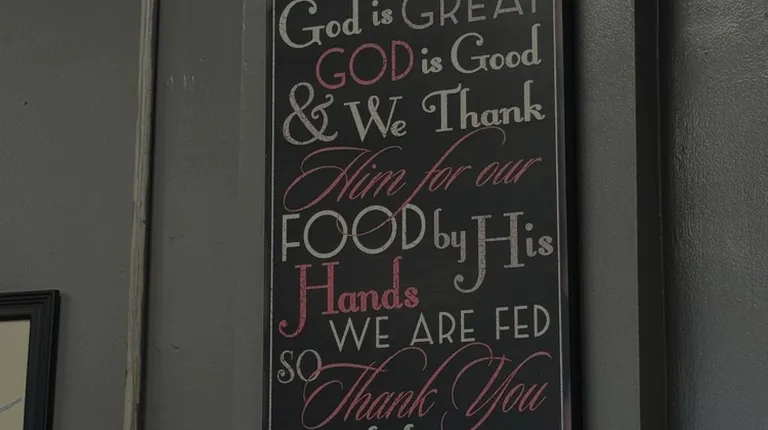 God is GREAT
GOD is Good
& We Thank
Him for our
FOOD by His
Hands
WE ARE FED
so Thank You